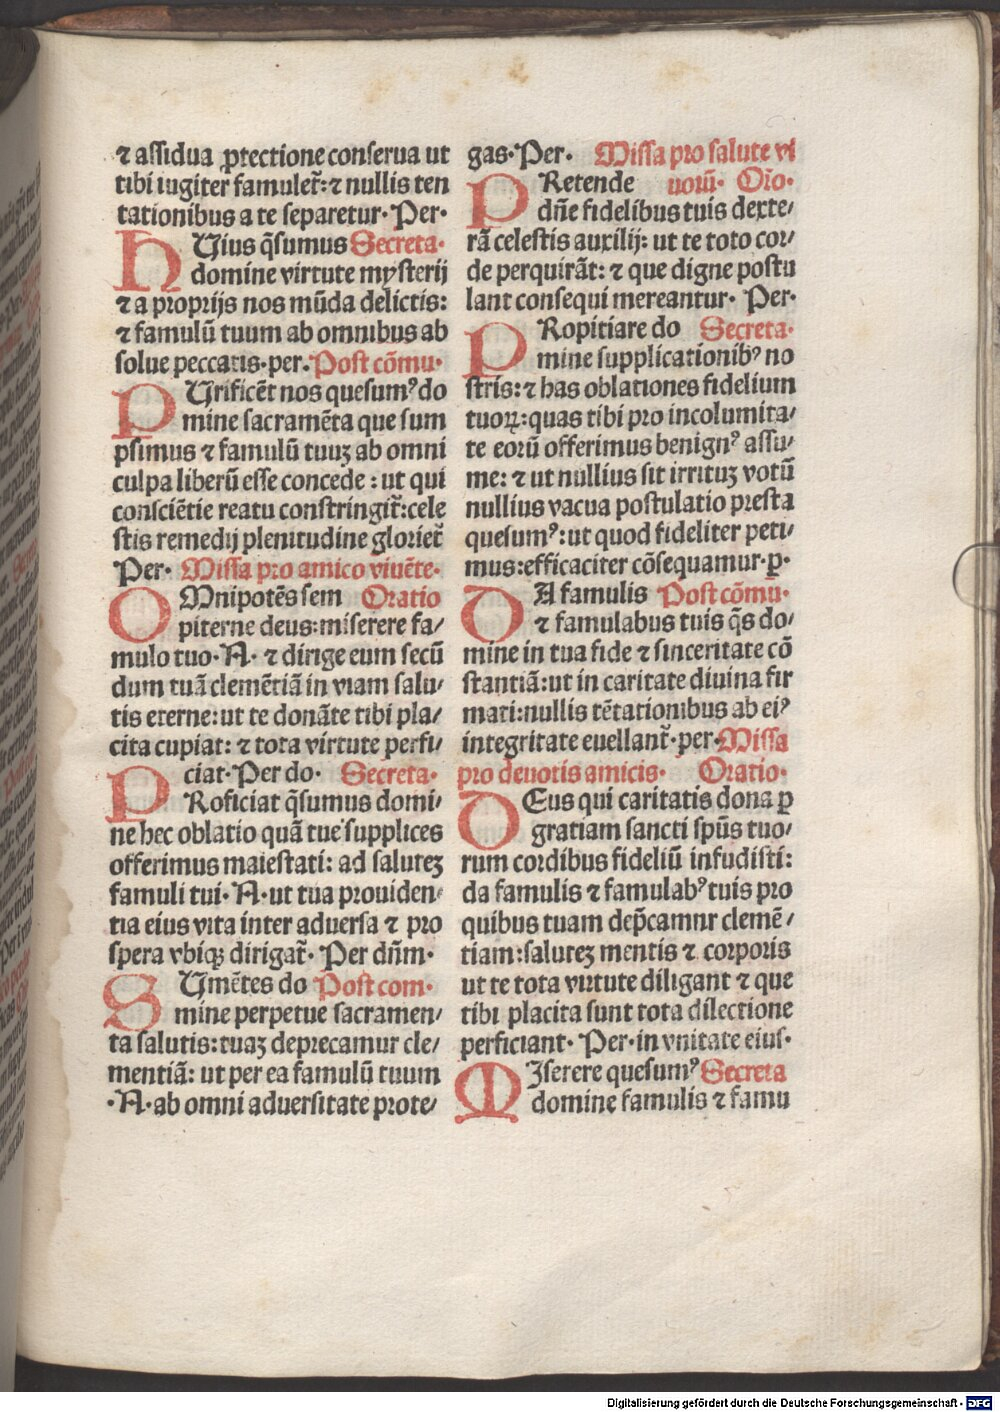 ⁊ assidua ꝓtectione conserua ut
tibi iugiter famulet̄: ⁊ nullis ten
tationibus a te separetur· Per·
hUius q̄sumus Secreta·
domine virtute mysterij
⁊ a proprijs nos mūda delictis:
⁊ famulū tuum ab omnibus ab
solue peccatis·per· Post cōmu·
PUrificēt nos quesumꝰ do
mine sacramēta que sum
psimus ⁊ famulū tuuʒ ab omni
culpa liberū esse concede : ut qui
consciētie reatu constringit̄:cele
stis remedij plenitudine gloriet̄
Per· Missa pro amico viuēte·
OMnipotēs sem Oratio
piterne deus:miserere fa/
mulo tuo· N· ⁊ dirige eum secū
dum tuā clemētiā in viam salu/
tis eterne: ut te donāte tibi pla/
cita cupiat: ⁊ tota virtute perfi/
ciat·Per do· Secreta·
PRoficiat q̄sumus domi/
ne hec oblatio quā tue supplices
offerimus maiestati: ad saluteʒ
famuli tui· N· ut tua prouiden/
tia eius vita inter aduersa ⁊ pro
spera vbiqꝫ dirigat̄· Per dn̄m·
SUmētes do Post com·
mine perpetue sacramen/
ta salutis: tuaʒ deprecamur cle/
mentiā: ut per ea famulū tuum
·N·ab omni aduersitate prote/
gas·Per· Missa pro salute vi
PRetende uorū· Oro·
dn̄e fidelibus tuis dexte/
rā celestis auxilij: ut te toto cor/
de perquirāt: ⁊ que digne postu
lant consequi mereantur· Per·
PRopitiare do Secreta·
mine supplicationibꝰ no
stris: ⁊ has oblationes fidelium
tuoꝝ: quas tibi pro incolumita/
te eorū offerimus benignꝰ assu/
me: ⁊ ut nullius sit irrituʒ votū
nullius vacua postulatio presta
quesumꝰ: ut quod fideliter peti/
mus: efficaciter cōsequamur·ꝑ·
DA famulis Post cōmu·
⁊ famulabus tuis q̄s do/
mine in tua fide ⁊ sinceritate cō
stantiā: ut in caritate diuina fir
mati: nullis tētationibus ab eiꝰ
integritate euellant̄·per· Missa
pro deuotis amicis· Oratio·
DEus qui caritatis dona ꝑ
gratiam sancti spūs tuo/
rum cordibus fideliū infudisti:
da famulis ⁊ famulabꝰ tuis pro
quibus tuam dep̄camur clemē/
tiam: saluteʒ mentis ⁊ corporis
ut te tota virtute diligant ⁊ que
tibi placita sunt tota dilectione
perficiant· Per·in vnitate eius·
MIserere quesumꝰ Secreta
domine famulis ⁊ famu
Digitalisierung gefördert durch die Deutsche Forschungsgemeinschaft - DFG